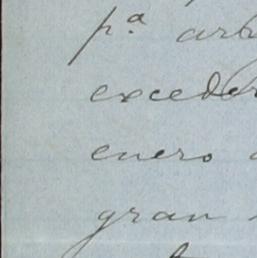 pª arb
exceder
enero
gran